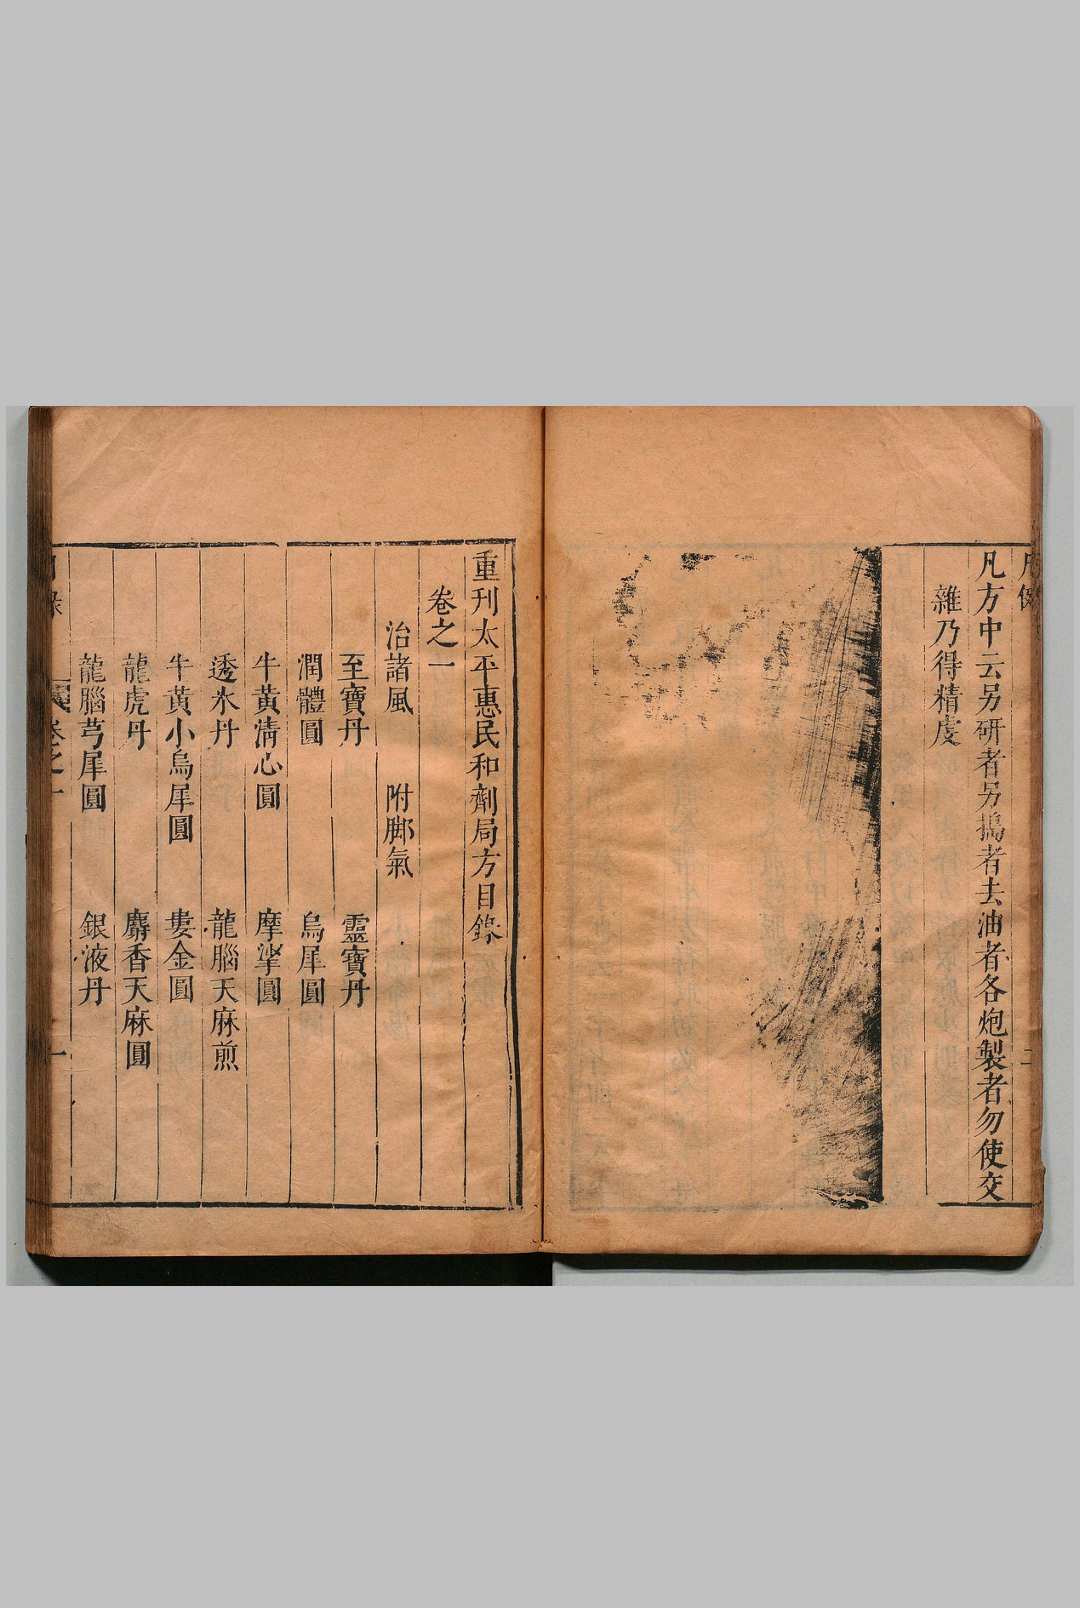 凡方中云另研者另搗者去油者各炮製者勿使交
雜乃得精虔
二
重刊太平惠民和劑局方目錄
卷之一
治諸風 附脚氣
至寶丹 靈寶丹
潤體圓 烏犀圓
牛黃清心圓 摩挲圓
透氷丹 龍腦天麻煎
牛黃小烏犀圓 婁金圓
龍虎丹 麝香天麻圓
龍腦芎犀圓 銀液丹
卷之一
一